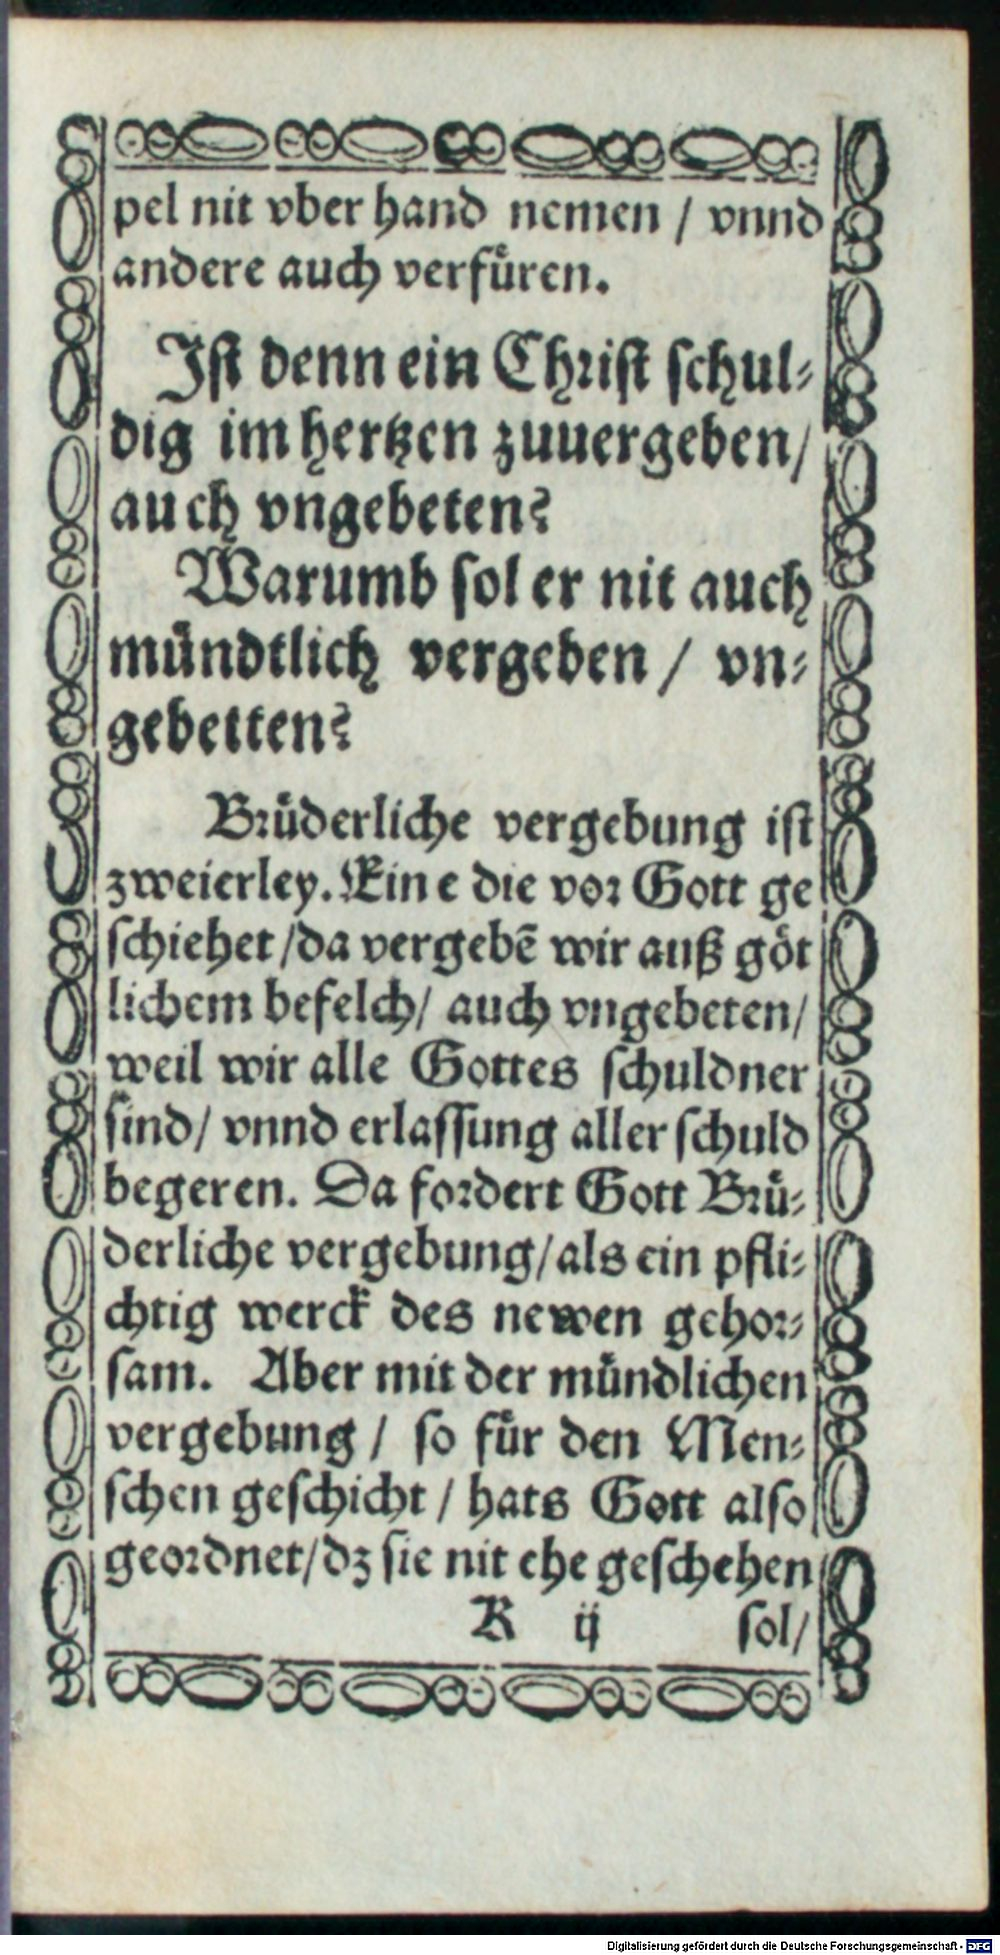 pel nit vber hand nemen / vnnd
andere auch verfuͤren.
Iſt denn ein Chriſt ſchul⸗
dig im hertzen zuuergeben/
auch vngebeten?
Warumb ſol er nit auch
muͤndtlich vergeben / vn⸗
gebetten?
Bruͤderliche vergebung iſt
zweierley. Eine die vor Gott ge
ſchiehet /da vergebẽ wir auß goͤt
lichem befelch/ auch vngebeten/
weil wir alle Gottes ſchuldner
ſind/ vnnd erlaſſung aller ſchuld
begeren. Da fordert Gott Bruͤ⸗
derliche vergebung/als ein pfli⸗
chtig werck des newen gehor⸗
ſam. Aber mit der muͤndlichen
vergebung / ſo fuͤr den Men⸗
ſchen geſchicht / hats Gott alſo
geordnet/dz ſie nit ehe geſchehen
K ij ſol/
Digitalisierung gefördert durch die Deutsche Forschungsgemeinschaft - DFG